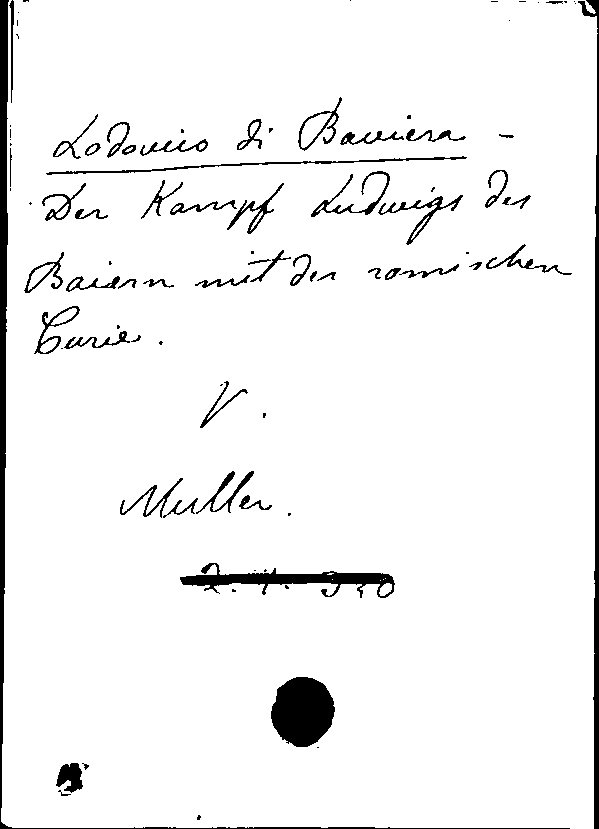 Lodovico di Baviera -
Der Kampf Ludwigs des
Baiern mit der romischen
Curie.
V.
Muller.